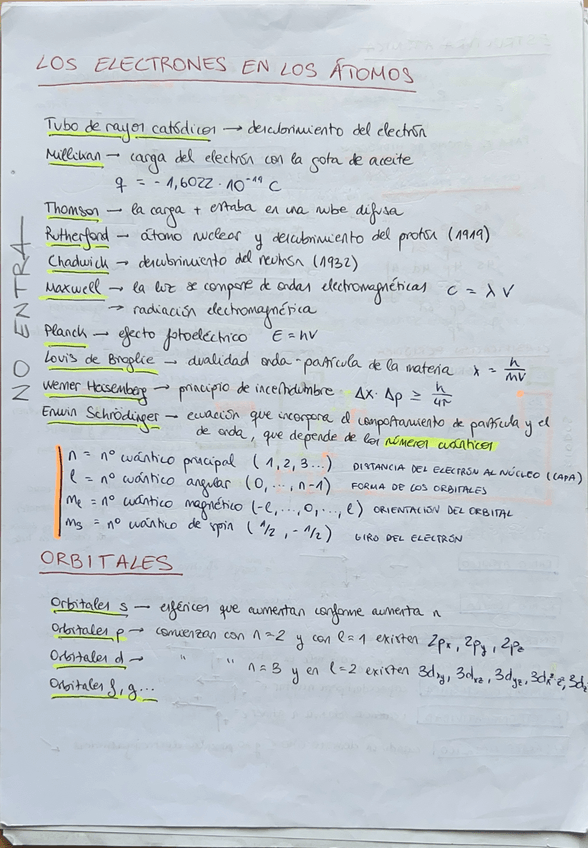 LOS ELECTRONES EN LOS ÁTOMOS
Tubo de rayos catódicos → descubrimiento del electrón
Millikan → carga del electrón con la gota de aceite
q = -1,6022·10⁻¹⁹ C
Thomson → la carga + estaba en una nube difusa
Rutherford → átomo nuclear y descubrimiento del protón (1919)
Chadwick → descubrimiento del neutrón (1932)
Maxwell → la luz se compone de ondas electromagnéticas c = λ ν
→ radiación electromagnética
Planck → efecto fotoeléctrico E = hν
Louis de Broglie → dualidad onda-partícula de la materia λ = h/mv
Werner Hasenberg → principio de incertidumbre Δx·Δp ≥ h/4π
Erwin Schrödinger → ecuación que incorpora el comportamiento de partícula y el
de onda, que depende de los números cuánticos
NO ENTRA
n = nº cuántico principal (1, 2, 3...) DISTANCIA DEL ELECTRÓN AL NÚCLEO (CAPA)
l = nº cuántico angular (0, ..., n-1) FORMA DE LOS ORBITALES
ml = nº cuántico magnético (-l, ..., 0, ..., l) ORIENTACIÓN DEL ORBITAL
ms = nº cuántico de spin (1/2, -1/2) GIRO DEL ELECTRÓN
ORBITALES
Orbitales s → esféricos que aumentan conforme aumenta n
Orbitales p → comienzan con n=2 y con l=1 existen 2px, 2py, 2pz
Orbitales d → " " n=3 y en l=2 existen 3dxy, 3dxz, 3dyz,
Orbitales f, g...